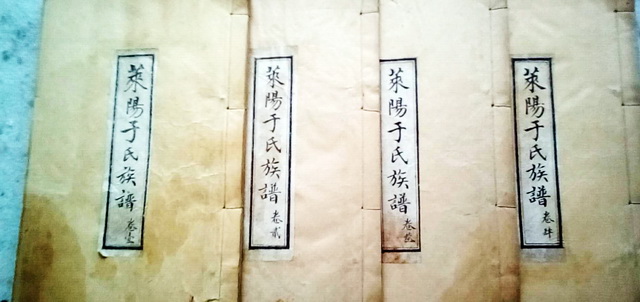 萊陽于氏族譜 卷壹
萊陽于氏族譜 卷貳
萊陽于氏族譜 卷叁
萊陽于氏族譜 卷肆